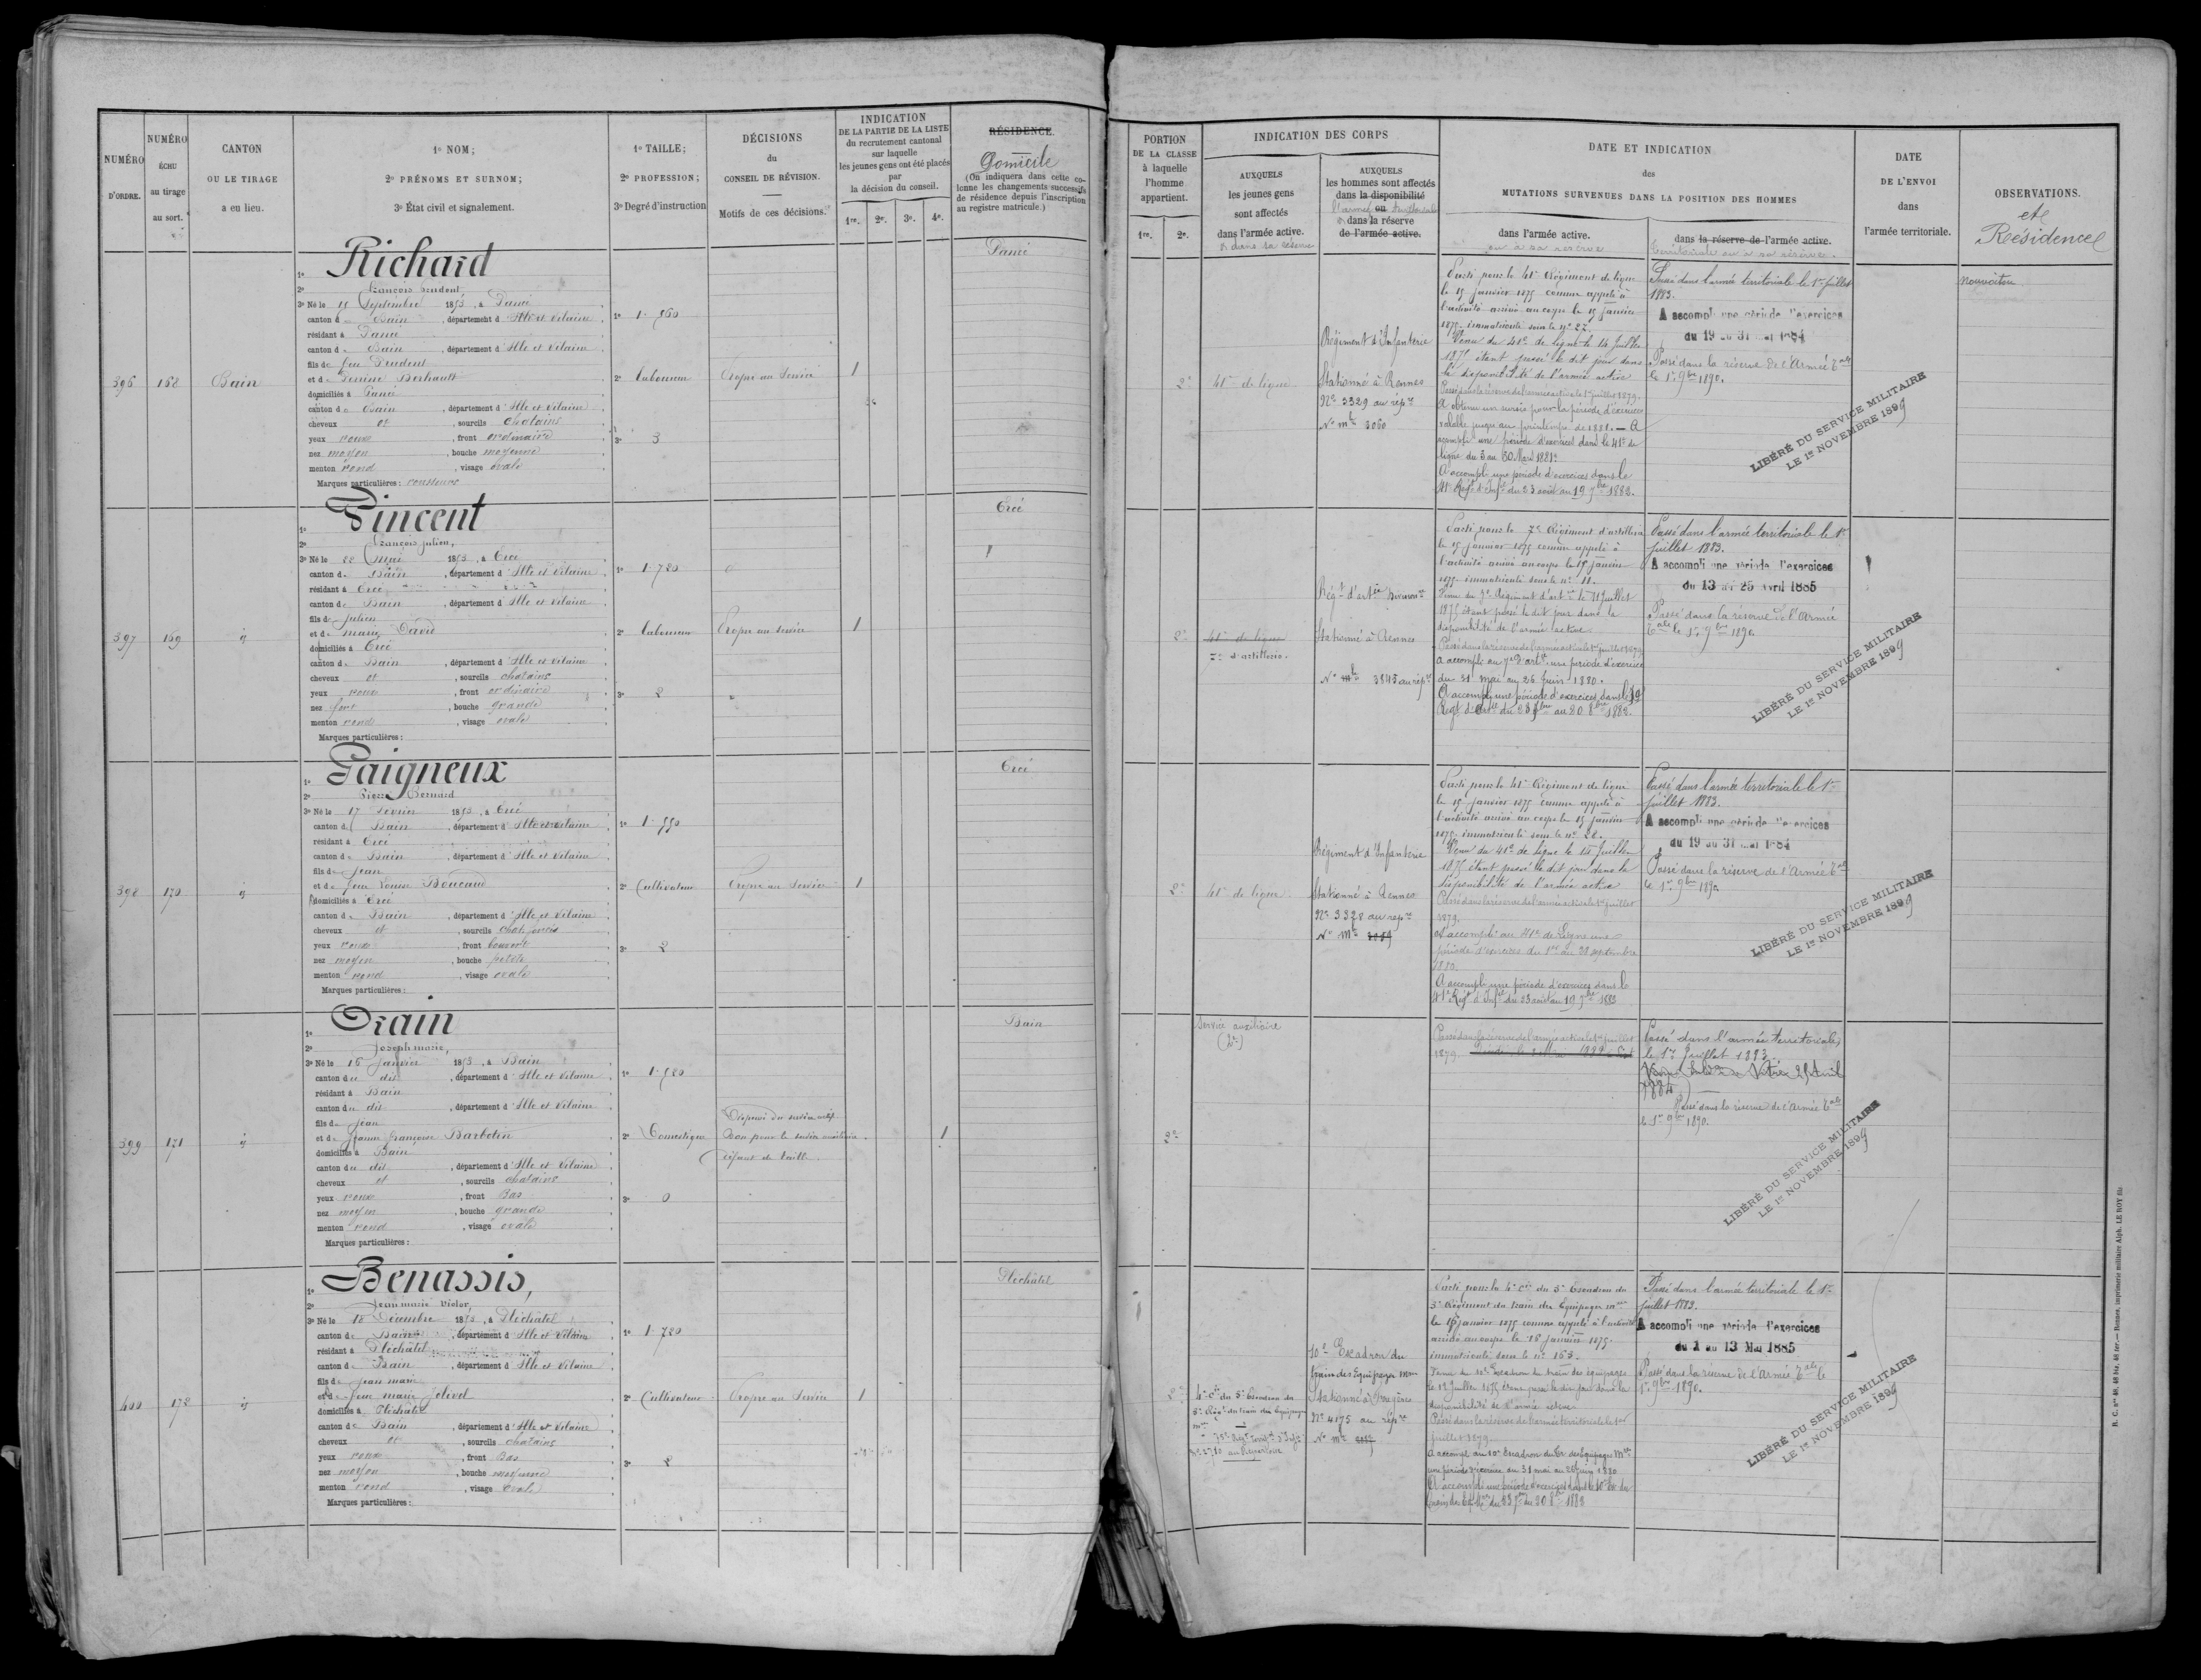 NUMÉRO
D'ORDRE.
NUMÉRO
ÉCHU
au tirage
au sort.
CANTON
OU LE TIRAGE
a eu lieu.
1º NOM;
2º PRÉNOMS ET SURNOM;
3º État civil et signalement.
1º TAILLE;
2º PROFESSION;
3º Degré d'instruction
DÉCISIONS
du
CONSEIL DE RÉVISION.
Motifs de ces décisions.
INDICATION
DE LA PARTIE DE LA LISTE
du recrutement cantonal
sur laquelle
les jeunes gens ont été placés
par
la décision du conseil.
1re. 2e. 3e. 4e.
RÉSIDENCE.
Domicile
(On indiquera dans cette co-
lonne les changements successifs
de résidence depuis l'inscription
au registre matricule.)
396
168
Bain
1º Richard
2º François Prudent
3º Né le 15 Septembre 1853, à Pancé
canton d e Bain, département d'Ille et Vilaine
résidant à Pancé
canton d e Bain, département d'Ille et Vilaine
fils de feu Prudent
et de Perrine
domiciliés à Pancé
canton de Bain, département d'Ille et Vilaine
cheveux et, sourcils chatains
yeux roux, front ordinaire
nez moyen, bouche moyenne
menton rond, visage ovale
Marques particulières:
1º 1. 560
2º laboureur
3º 3
Propre au Service
1
Pancé
397
169
id
1º Vincent
2º François Julien,
3º Né le 22 Mai 1853, à Ercé
canton de Bain, département d'Ille et Vilaine
résidant à Ercé
canton de Bain, département d'Ille et Vilaine
fils de Julien
et de Marie David
domiciliés à Ercé
canton de Bain, département d'Ille et Vilaine
cheveux et, sourcils chatains
yeux roux, front ordinaire
nez fort, bouche grande
menton rond, visage ovale
Marques particulières:
1º 1. 720
2º laboureur
3º 2
Propre au service
1
Ercé
398
170
id
1º Gaigneux
2º Pierre Bernard
3º Né le 17 Février 1853, à Ercé
canton de Bain, département d'Ille et Vilaine
résidant à Ercé
canton de Bain, département d'Ille et Vilaine
fils de Jean
et de feue Louise Boucaud
domiciliés à Ercé
canton de Bain, département d'Ille et Vilaine
cheveux et, sourcils chat. foncés
yeux roux, front couvert
nez moyen, bouche petite
menton rond, visage ovale
Marques particulières:
1º 1. 550
2º Cultivateur
3º 2
Propre au Service
1
Ercé
399
171
id
1º Orain
2º Joseph marie,
3º Né le 16 Janvier 1853, à Bain
canton du dit, département d'Ille et Vilaine
résidant à Bain
canton du dit, département d'Ille et Vilaine
fils de Jean
et de Jeanne Françoise Barbotin
domiciliés à Bain
canton du dit, département d'Ille et Vilaine
cheveux et, sourcils chatains
yeux roux, front Bas
nez moyen, bouche grande
menton rond, visage ovale
Marques particulières:
1º 1. 520
2º Domestique
3º 0
Dispensé du service actif
Bon pour le service auxiliaire
défaut de taille.
1
Bain
400
172
id
1º Benassis,
2º Jean marie Victor,
3º Né le 18 Décembre 1853, à Pléchâtel
canton de Bain, département d'Ille et Vilaine
résidant à Pléchâtel
canton de Bain, département d'Ille et Vilaine
fils de Jean marie
et de feue marie Jolivel
domiciliés à Pléchâtel
canton de Bain, département d'Ille et Vilaine
cheveux et, sourcils chatains
yeux roux, front Bas
nez moyen, bouche moyenne
menton rond, visage ovale
Marques particulières:
1º 1. 720
2º Cultivateur
3º 2
Propre au Service
1
Pléchâtel
PORTION
DE LA CLASSE
à laquelle
l'homme
appartient.
1re. 2e.
INDICATION DES CORPS
AUXQUELS
les jeunes gens
sont affectés
dans l'armée active.
& dans sa réserve
AUXQUELS
les hommes sont affectés
dans la disponibilité
l'armée ou territoriale
& dans la réserve
de l'armée active.
DATE ET INDICATION
des
MUTATIONS SURVENUES DANS LA POSITION DES HOMMES
dans l'armée active.
ou à sa réserve
dans la réserve de l'armée active.
territoriale ou à sa réserve.
DATE
DE L'ENVOI
dans
l'armée territoriale.
OBSERVATIONS.
et
Résidence
2e
41e de ligne
Régiment d'Infanterie
Stationné à Rennes
No 3329 au répre
No mle 3060
Parti pour le 41e Régiment de ligne
le 15 janvier 1875 comme appelé à
l'activité arrivé au corps le 15 janvier
1875. immatriculé sous le no 27.
Venu du 41e de ligne le 14 Juillet
1875 étant passé le dit jour dans
la disponibilité de l'armée active
Passé dans la réserve de l'armée active le 1er juillet 1879.
A obtenu un sursis pour la période d'exercices
valable jusqu'au printemps de 1881. — A
accompli une période d'exercices dans le 41e de
ligne du 3 au 30 Mars 1881.
A accompli une période d'exercices dans le
41e Régt d'Infie du 23 août au 19 7bre 1882.
Passé dans l'armée territoriale le 1er juillet
1883.
A accompli une période d'exercices
du 19 au 31 mai 1884
Passé dans la réserve de l'Armée Tale
le 1er 9bre 1890.
LIBÉRÉ DU SERVICE MILITAIRE
LE 1er NOVEMBRE 1899
Nouvoitou
2e
41e de ligne
7e d'artillerie.
Régt d'artie
Stationné à Rennes
No mle 3845 au répre
Parti pour le 7e Régiment d'artillerie
le 15 janvier 1875 comme appelé à
l'activité arrivé au corps le 15 janvier
1875. immatriculé sous le no 11.
Venu du 7e Régiment d'artie le 11 Juillet
1875 étant passé le dit jour dans la
disponibilité de l'armée active.
Passé dans la réserve de l'armée active le 1er juillet 1879
A accompli au 7e d'artie une période d'exercices
du 31 mai au 26 Juin 1880.
A accompli une période d'exercices dans le
Régt d'Artie du 23 7bre au 20 8bre 1882.
Passé dans l'armée territoriale le 1er
juillet 1883.
A accompli une période d'exercices
du 13 au 25 avril 1885
Passé dans la réserve de l'Armée
Tale le 1er 9bre 1890.
LIBÉRÉ DU SERVICE MILITAIRE
LE 1er NOVEMBRE 1899
2e
41e de ligne
Régiment d'Infanterie
Stationné à Rennes
No 3328 au répre
No Mle 3059
Parti pour le 41e Régiment de ligne
le 15 janvier 1875 comme appelé à
l'activité arrivé au corps le 15 janvier
1875. immatriculé sous le no 28.
Venu du 41e de ligne le 14 Juillet
1875 étant passé le dit jour dans la
disponibilité de l'armée active
Passé dans la réserve de l'armée active le 1er juillet
1879.
A accompli au 41e de Ligne une
période d'exercices du 1er au 28 septembre
1880.
A accompli une période d'exercices dans le
41e Régt d'Infie du 23 août au 19 7bre 1882
Passé dans l'armée territoriale le 1er
juillet 1883.
A accompli une période d'exercices
du 19 au 31 mai 1884
Passé dans la réserve de l'Armée Tale
le 1er 9bre 1890
LIBÉRÉ DU SERVICE MILITAIRE
LE 1er NOVEMBRE 1899
Service auxiliaire
2e
Passé dans la réserve de l'armée active le 1er juillet
1879.
Passé dans l'armée territoriale
le 1er Juillet 1883
Vitré 25 Avril
1884
Passé dans la réserve de l'Armée Tale
le 1er 9bre 1890.
LIBÉRÉ DU SERVICE MILITAIRE
LE 1er NOVEMBRE 1899
2e
4e Cie du 5e Escadron du
3e Régt du train des Equipages
10e Escadron du
train des Equipages Mres
Stationné à Fougères
No 4175 au répre
No Mle
Parti pour la 4e Cie du 5e Escadron du
3e Régiment du train des Equipages mres
le 16 janvier 1875 comme appelé à l'activité
arrivé au corps le 16 janvier 1875.
immatriculé sous le no 163.
Venu du 10e Escadron du train des équipages
disponibilité de l'armée active
Passé dans la réserve de l'armée territoriale le 1er
juillet 1879.
A accompli au 10e Escadron du Tr. des Equipages Mres
une période d'exercices du 31 mai au 26 juin 1880
A accompli une période d'exercices dans le 10e Esc du
train des Eq. Mres du 23 7bre au 20 8bre 1882
Passé dans l'armée territoriale le 1er
juillet 1883.
A accompli une période d'exercices
du 1 au 13 Mai 1885
Passé dans la réserve de l'Armée Tale le
1er 9bre 1890.
LIBÉRÉ DU SERVICE MILITAIRE
LE 1er NOVEMBRE 1899
R. C. nos 46, 46 bis, 46 ter.— Rennes, imprimerie militaire Alph. LE ROY fils